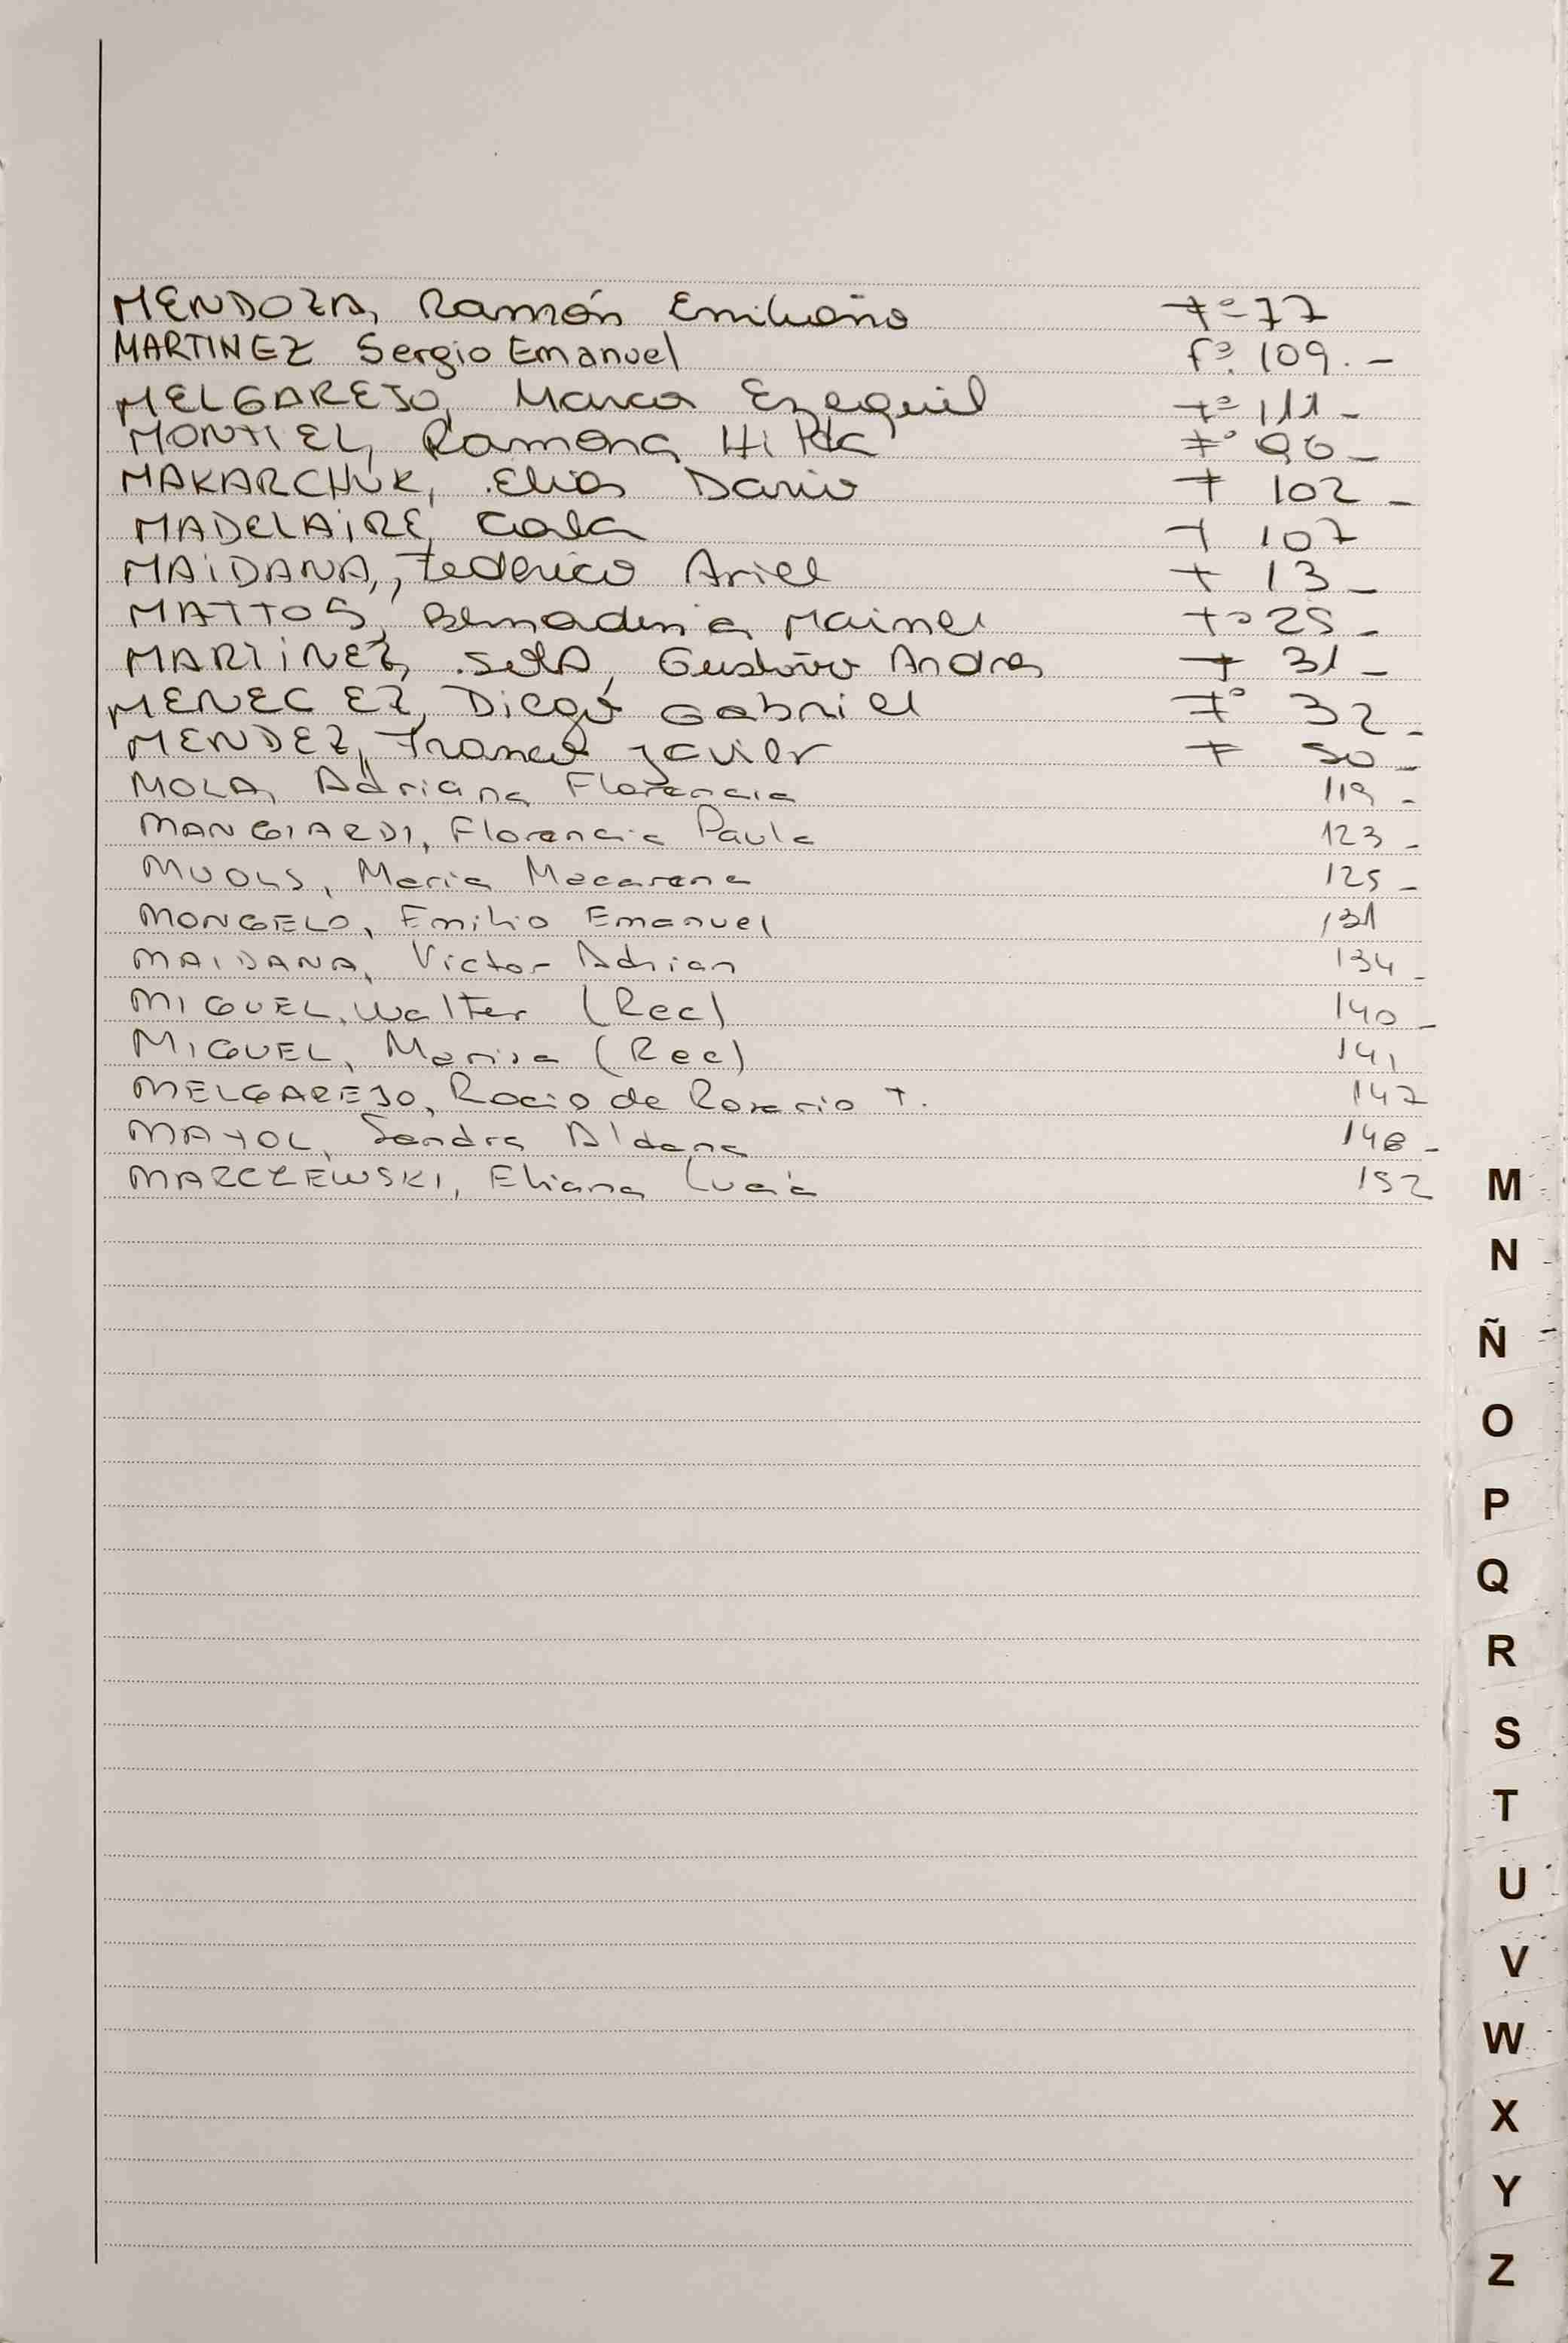 MENDOZA, Ramón Emiliano Fº 77
MARTINEZ Sergio Emanuel Fº. 109. -
MELGAREJO, Marcos Ezequiel Fº 111 -
MONTIEL, Ramona Hilda Fº 96 -
MAKARCHUK, Elias Dario F 102 -
MADELAIRE, Carla F 107
MAIDANA, Federico Ariel F 13 -
MATTOS, Bernadina Mainer Fº 25 -
MARTINEZ, Gustavo Andres F 31 -
MENECEZ, Diego Gabriel Fº 32 -
MENDEZ, Franco Javier F 50 -
MOLA, Adriana Florencia 119 -
MANGIARDI, Florencia Paula 123 -
Maria Macarena 125 -
MONGELO, Emilio Emanuel 131
MAIDANA, Victor Adrian 134 -
MIGUEL, Walter (Rec) 140 -
MIGUEL, Marisa (Rec) 141
MELGAREJO, Rocio de Rosario T. 147
MAYOL, Sandra Aldana 148 -
MARCZEWSKI, Eliana Lucia 152
M
N
Ñ
O
P
Q
R
S
T
U
V
W
X
Y
Z